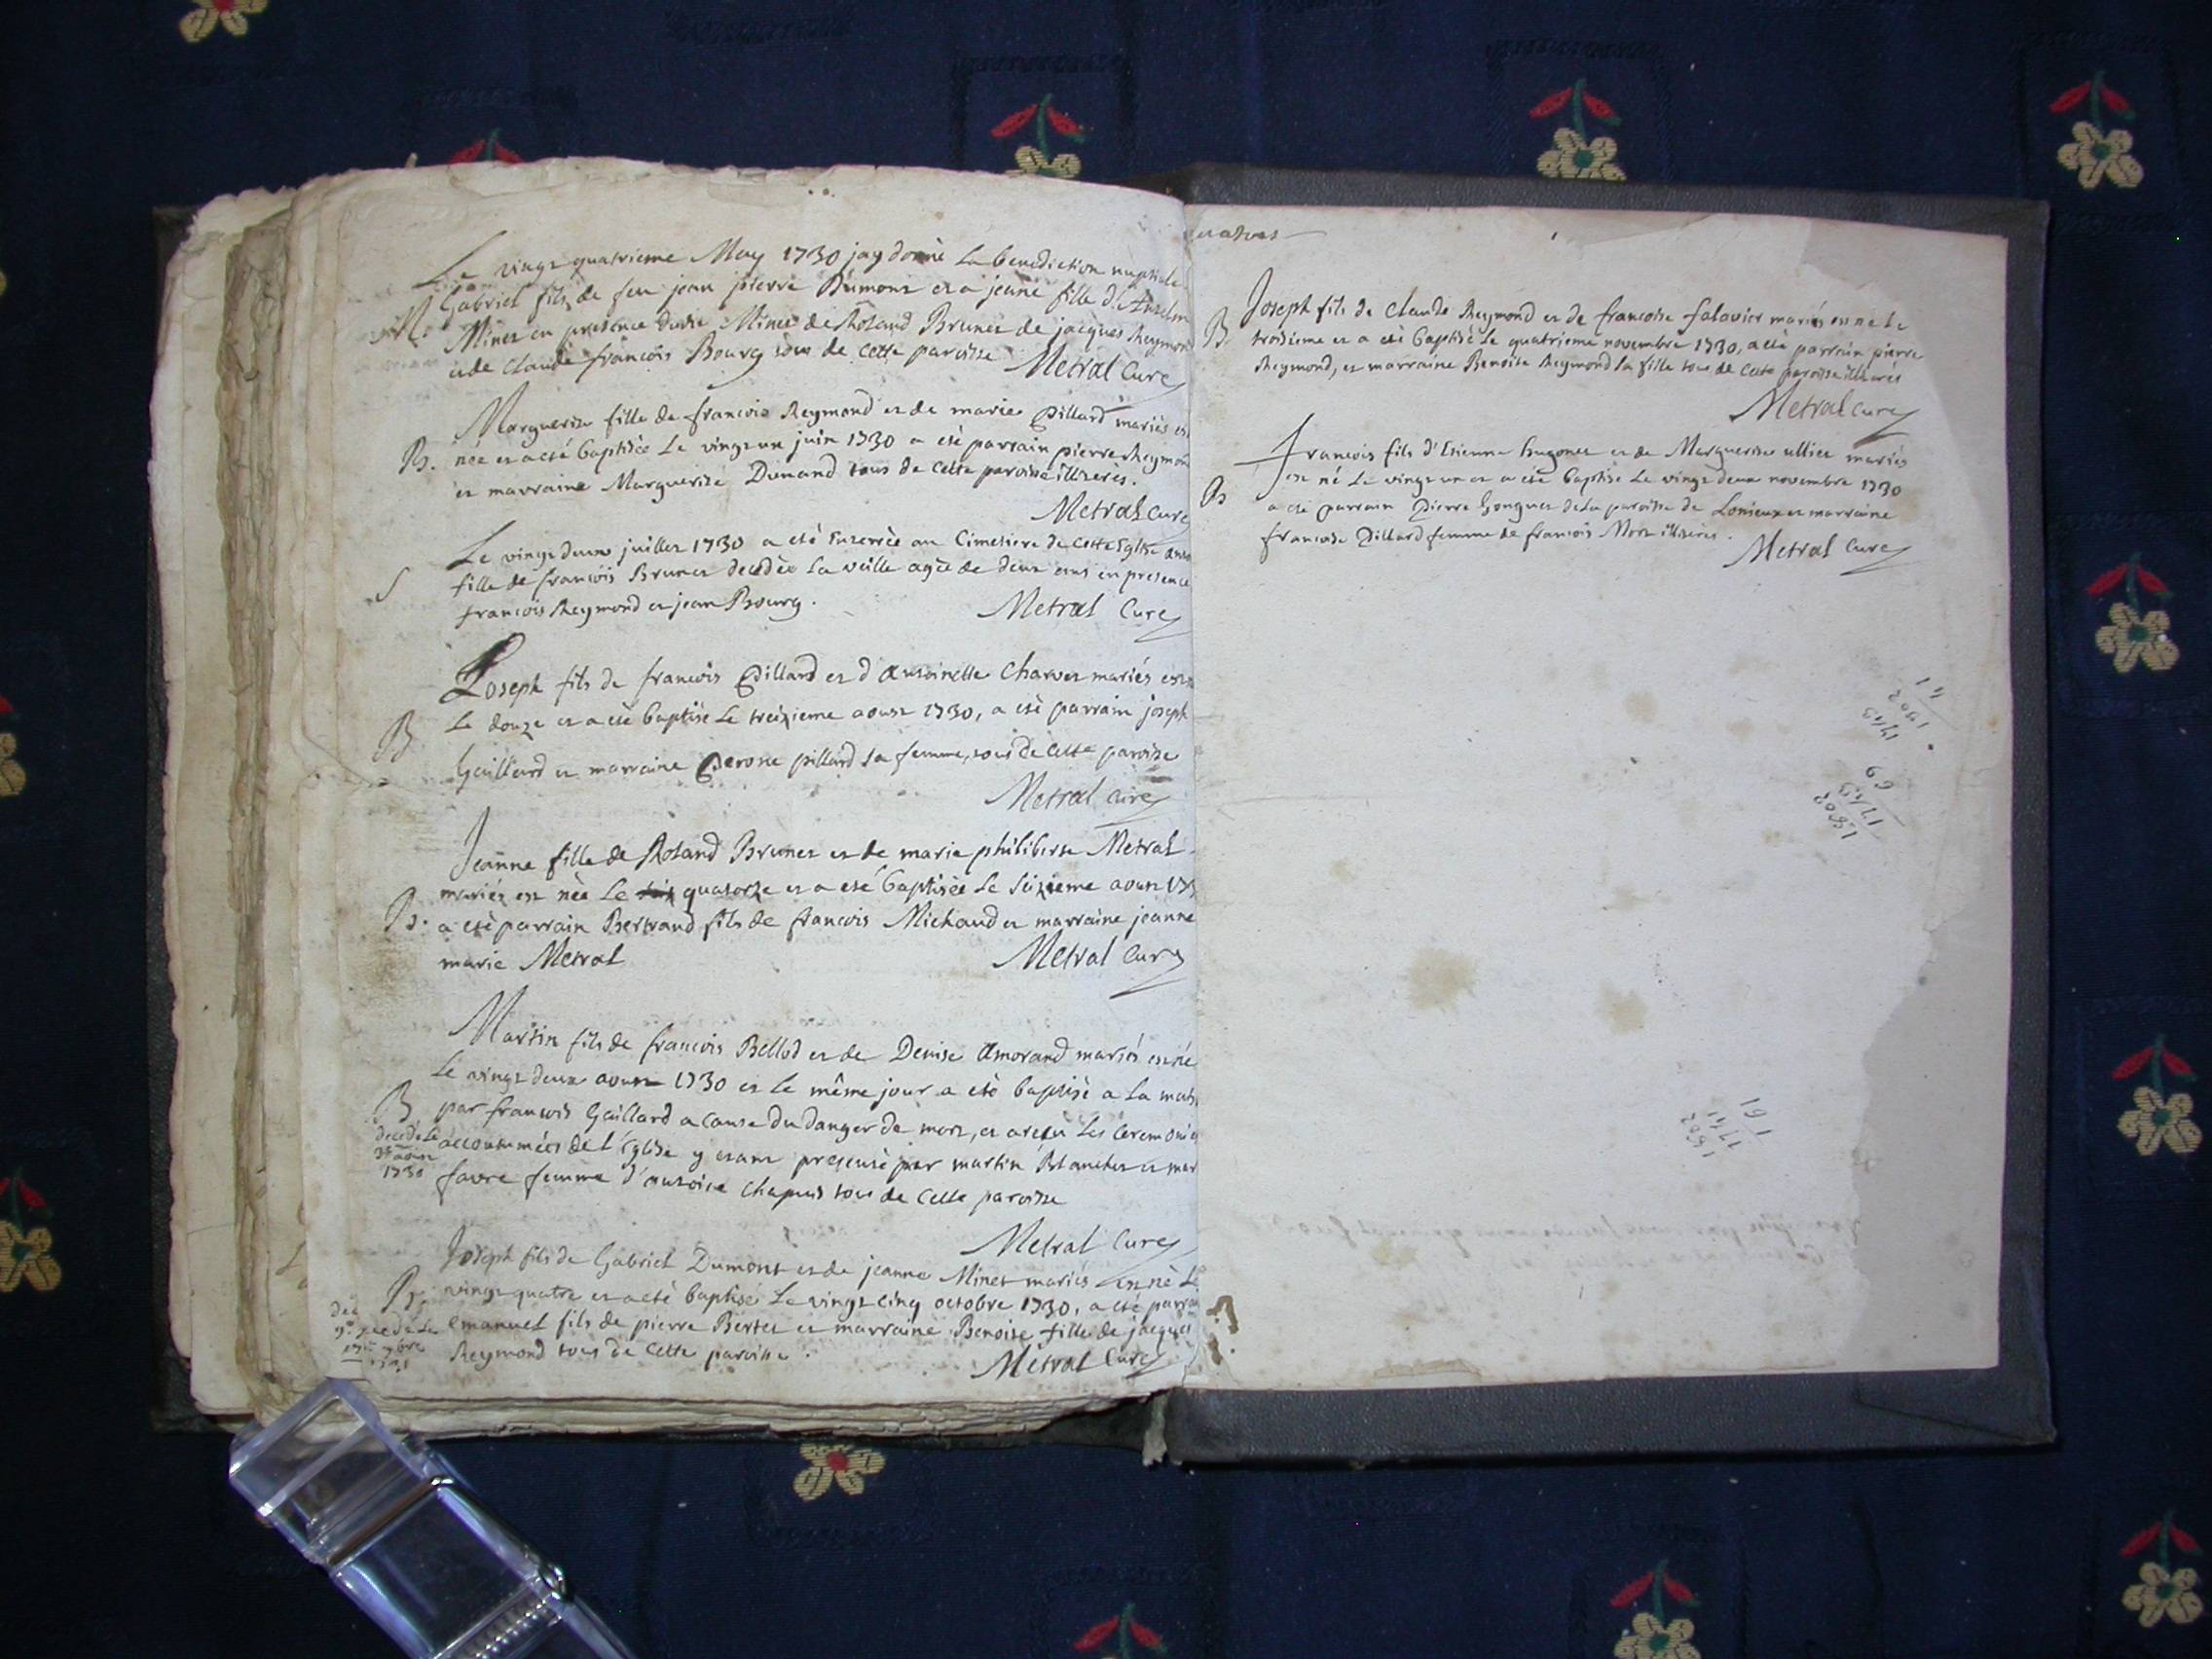 Le vingt quatrieme May 1730 jay donné La benediction nuptiale
M. Gabriel fils de feu jean pierre Dumont et a jeanne fille d'Anselm
Minet en presence dudit Minet de Roland Brunet de jacques Reymond
et de Claude françois Bourg tous de cette paroisse Metral Curé
Marguerite fille de francois Reymond et de marie Pillard mariés est
B. née et a eté baptisée Le vingt un juin 1730 a eté parrain pierre Reymon
et marraine Marguerite Dunand tous de cette paroisse illiterés.
Metral Curé
Le vingt deux juillet 1730 a eté Enterrée au Cimetiere de cette Eglise
S fille de françois Brunet decedée La veille agée de deux ans en presence
francois Reymond et jean Bourg. Metral Curé
Joseph fils de francois Pillard et d'Antoinette Charvet mariés est
B Le douze et a eté baptisé Le treizieme aoust 1730, a eté parrain joseph
Gaillard et marraine Perone pillard sa femme, tous de cette paroisse
Metral Curé
Jeanne fille de Roland Brunet et de marie philiberte Metral
mariés est née Le quatorze et a eté baptisée Le seizieme aoust 173
B. a eté parrain Bertrand fils de francois Michaud et marraine jeanne
marie Metral Metral Curé
Martin fils de francois Bellod et de Denise Amorand mariés est né
Le vingt deux aoust 1730 et Le même jour a eté baptisé a La mais
B par francois Gaillard a cause du danger de mort, et a reçu Les Ceremonies
decedé Le accoutumées de L'Eglise y etant presenté par martin Blanchet et mar
3e aoust
1730 favre femme d'antoine Chapuis tous de cette paroisse
Metral Curé
Joseph fils de Gabriel Dumont et de jeanne Minet mariés est né Le
B. vingt quatre et a eté baptisé Le vingt cinq octobre 1730, a eté parra
decedé Le Emanuel fils de pierre Bertet et marraine Benoite fille de jacques
Reymond tous de cette paroisse. Metral Curé
Joseph fils de Claude Reymond et de francoise falavier mariés est né Le
B. troisieme et a eté baptisé Le quatrieme novembre 1730, a eté parrain pierre
Reymond, et marraine Benoite Reymond sa fille tous de cette paroisse illiterés
Metral Curé
francois fils d'Etienne hugonet et de Marguerite ullier mariés
est né Le vingt un et a eté baptisé Le vingt deux novembre 1730
B a eté parrain Pierre Gonguet de La paroisse de Lonieux et marraine
francoise Pillard femme de francois Mort illiterés.
Metral Curé